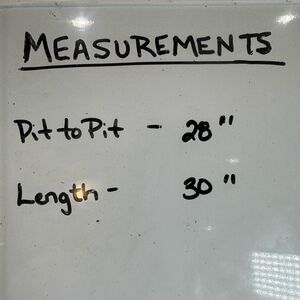 MEASUREMENTS
Pit to Pit - 28"
Length - 30"